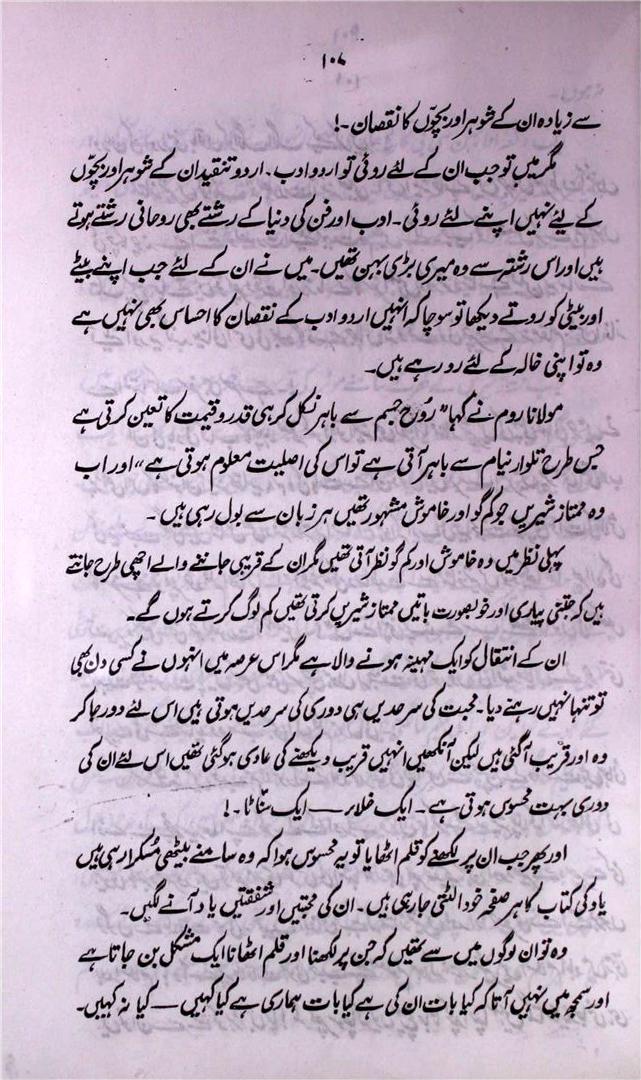 ۱۰۷
سے زیادہ ان کے شوہر اور بچوں کا نقصان ۔!
مگر میں تو جب ان کے لئے روئی تو اردو ادب ۔ اردو تنقید ان کے شوہر اور بچوں
کے لیئے نہیں اپنے لئے روئی ۔ ادب اور فن کی دنیا کے رشتے بھی روحانی رشتے ہوتے
ہیں اور اس رشتہ سے وہ میری بڑی بہن تھیں۔ میں نے ان کے لئے جب اپنے بیٹے
اور بیٹی کو روتے دیکھا تو سوچا کہ انہیں اردو ادب کے نقصان کا احساس بھی نہیں ہے
وہ تو اپنی خالہ کے لئے رو رہے ہیں۔
مولانا روم نے کہا "روح جسم سے باہر نکل کر ہی قدر و قیمت کا تعین کرتی ہے
جس طرح تلوار نیام سے باہر آتی ہے تو اس کی اصلیت معلوم ہوتی ہے" اور اب
وہ ممتاز شیریں جو کم گو اور خاموش مشہور تھیں ہر زبان سے بول رہی ہیں ۔
پہلی نظر میں وہ خاموش اور کم گو نظر آتی تھیں مگر ان کے قریبی جاننے والے اچھی طرح جانتے
ہیں کہ جتنی پیاری اور خوبصورت باتیں ممتاز شیریں کرتی تھیں کم لوگ کرتے ہوں گے۔
ان کے انتقال کو ایک مہینہ ہونے والا ہے مگر اس عرصہ میں انہوں نے کسی دن بھی
تو تنہا نہیں رہنے دیا۔ محبت کی سرحدیں ہی دوری کی سرحدیں ہوتی ہیں اس لئے دور جا کر
وہ اور قریب آگئی ہیں لیکن آنکھیں انہیں قریب دیکھنے کی عادی ہوگئی تھیں اس لئے ان کی
دوری بہت محسوس ہوتی ہے۔ ایک خلاء — ایک سناٹا ۔!
اور پھر جب ان پر لکھنے کو قلم اٹھایا تو یہ محسوس ہوا کہ وہ سامنے بیٹھی مسکرا رہی ہیں
یاد کی کتاب کا ہر صفحہ خود الٹتی جا رہی ہیں۔ ان کی محبتیں اور شفقتیں یاد آنے لگیں۔
وہ تو ان لوگوں میں سے تھیں کہ جن پر لکھنا اور قلم اٹھانا ایک مشکل بن جاتا ہے
اور سمجھ میں نہیں آتا کہ کیا بات ان کی ہے کیا بات ہماری ہے کیا کہیں — کیا نہ کہیں۔